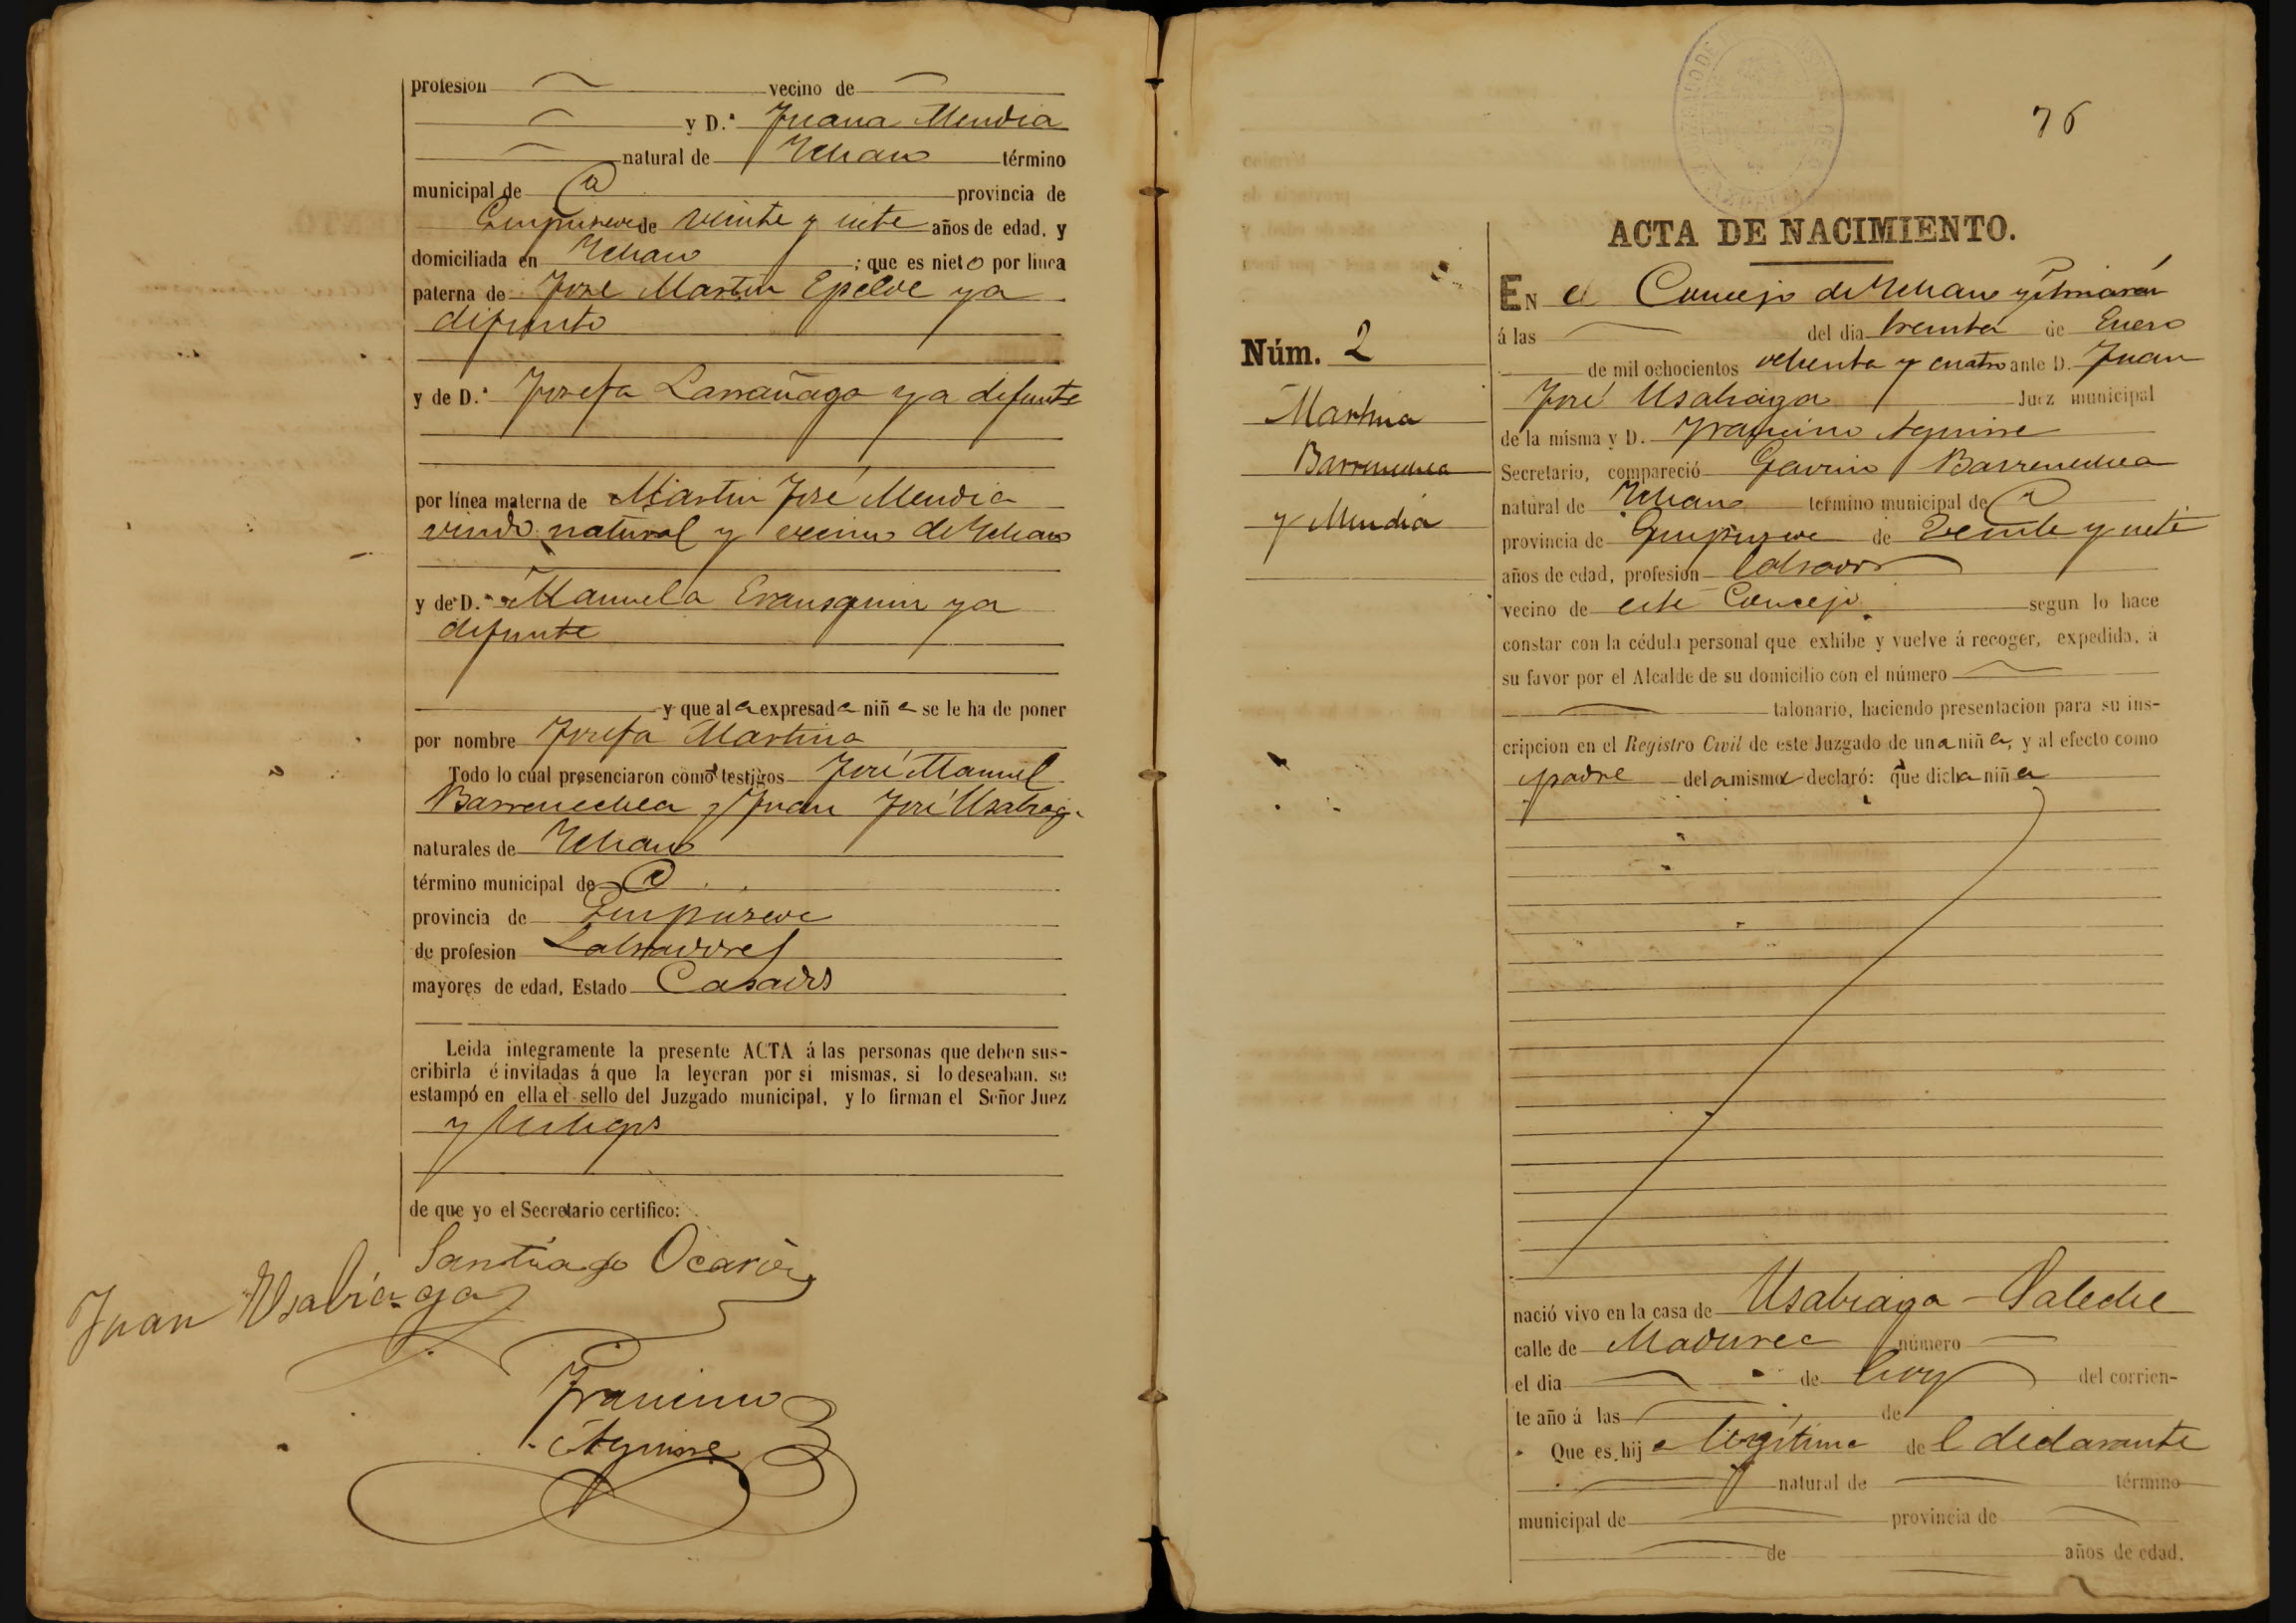 profesion vecino de
y D.ª Juana Mendia
natural de Ichaso término
municipal de id provincia de
Guipuzcoa de veinte y siete años de edad, y
domiciliada en Ichaso ; que es nieto por linea
paterna de José Martin Epelde ya
difunto
y de D.ª Josefa Larrañaga ya difunta
por línea materna de Martin José Mendia
viudo natural y vecino de Ichaso
y de D.ª Manuela Eransquin ya
difunta
y que al a expresada niña se le ha de poner
por nombre Josefa Martina
Todo lo cual presenciaron como testigos José Manuel
Barrenechea y Juan José Usabiaga
naturales de Ichaso
término municipal de id
provincia de Guipuzcoa
de profesion Labradores
mayores de edad, Estado Casados
Leida integramente la presente ACTA á las personas que deben sus-
cribirla é invitadas á que la leyeran por si mismas, si lo deseaban, se
estampó en ella el sello del Juzgado municipal, y lo firman el Señor Juez
y testigos
de que yo el Secretario certifico:
Santiago Ocariz
Juan Usabiaga
Francisco
Aguirre
76
ACTA DE NACIMIENTO.
EN el Concejo de Ichaso
á las del dia treinta de Enero
de mil ochocientos ochenta y cuatro ante D. Juan
José Usabiaga Juez municipal
de la misma y D. Francisco Aguirre
Secretario, compareció Gavino Barrenechea
natural de Ichaso termino municipal de id
provincia de Guipuzcoa de veinte y siete
años de edad, profesion labrador
vecino de este Concejo segun lo hace
constar con la cédula personal que exhibe y vuelve á recoger, expedida, á
su favor por el Alcalde de su domicilio con el número
talonario, haciendo presentacion para su ins-
cripcion en el Registro Civil de este Juzgado de una niña, y al efecto como
padre de la misma declaró: que dicha niña
Núm. 2
Martina
Barrenechea
y Mendia
nació vivo en la casa de Usabiaga-Saleche
calle de Madurea número
el dia de hoy del corrien-
te año á las de
Que es hija legítima del declarante
natural de término
municipal de provincia de
de años de edad,